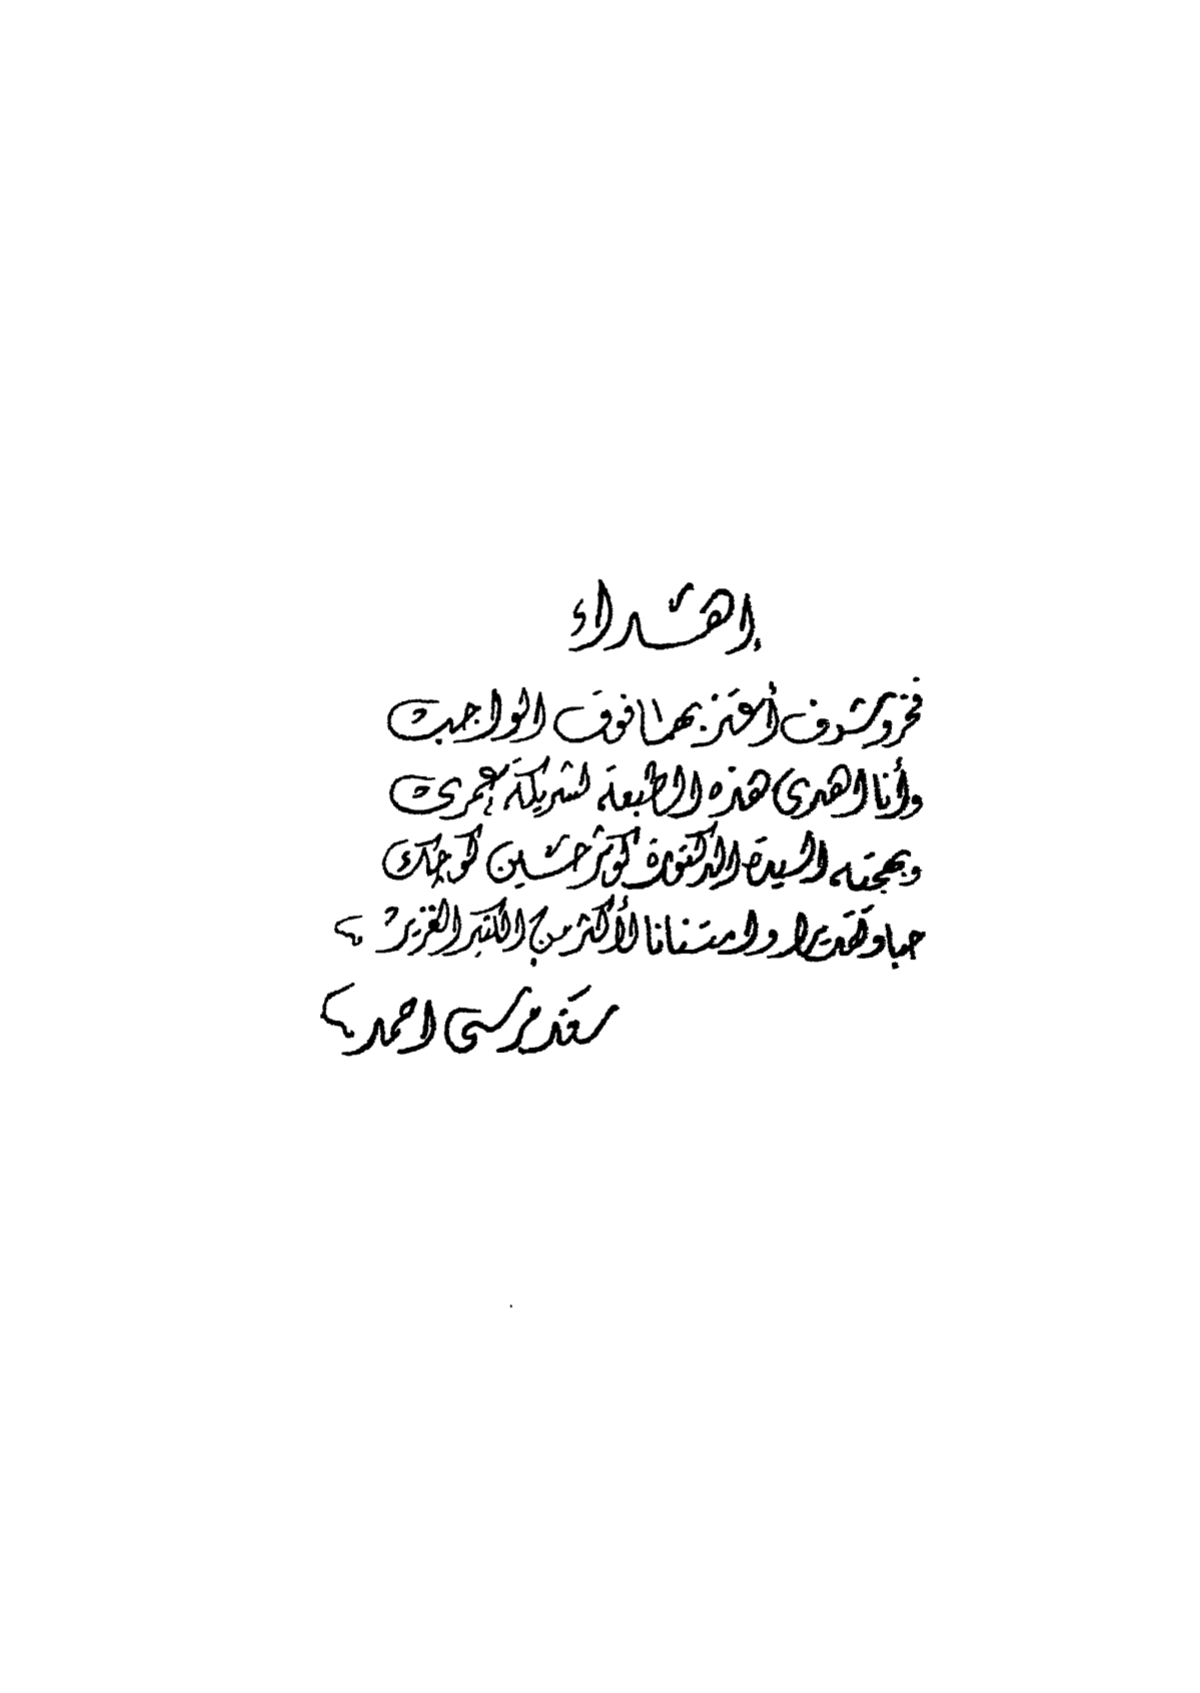 إهداء
فخر وشرف أعتز بهما فوق الواجب
وأنا اهدى هذه الطبعة لشريكة عمرى
وبهجته السيدة الدكتورة كوثر حسين كوجك
حبا وتقديرا وامتنانا لأكثر من الكثير الغزير
سعد مرسى احمد